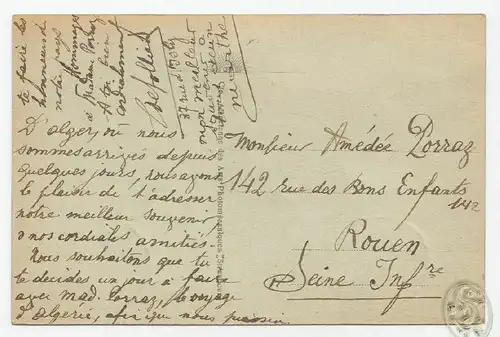 D'alger, où nous
sommes arrivés depuis
quelques jours, nous ayons
le plaisir de t'adresser
notre meilleur souvenir
& nos cordiales amitiés.
Nous souhaitons que tu
te décides un jour à faire
avec Mad. Porraz, le voyage
d'Algérie, afin que nous puissions
te faire les
honneurs de
notre pays
Hommages
à Madame Porraz
& à toi bien
cordialement
37 rue d'Isly
mon meilleur
Monsieur Amédée Porraz
142 rue des Bons Enfants
142
Rouen
Seine Infre